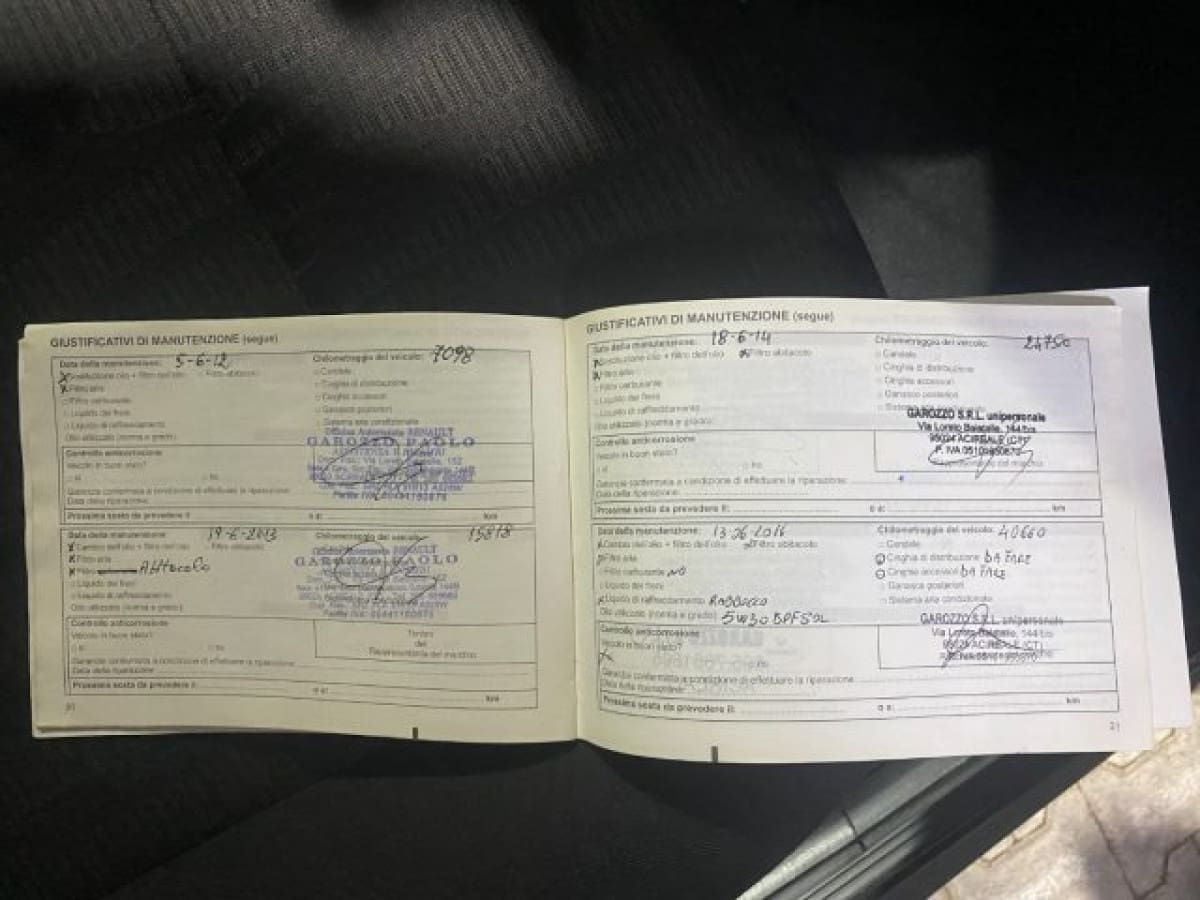 GIUSTIFICATIVI DI MANUTENZIONE (segue)
Data della manutenzione: 5-6-12 Chilometraggio del veicolo: 7098
Sostituzione olio + filtro dell'olio Filtro abitacolo Candele
Filtro aria Cinghia di distribuzione
Filtro carburante Cinghie accessori
Liquido dei freni Ganasce posteriori
Liquido di raffreddamento Sistema aria condizionata
Olio utilizzato (norma e grado):
Officina Autorizzata RENAULT
GAROZZO PAOLO
Controllo anticorrosione
Veicolo in buon stato?
si no
Garanzia confermata a condizione di effettuare la riparazione:
Data della riparazione:
Prossima sosta da prevedere il: o a: km
Data della manutenzione: 19-6-2013 Chilometraggio del veicolo: 15818
Cambio dell'olio + filtro dell'olio Filtro abitacolo
Filtro aria
Filtro Abitacolo
Liquido dei freni
Liquido di raffreddamento
Olio utilizzato (norma e grado):
GAROZZO PAOLO
Controllo anticorrosione
Veicolo in buon stato?
si no
Timbro
del
Rappresentante del marchio
Garanzia confermata a condizione di effettuare la riparazione:
Data della riparazione:
Prossima sosta da prevedere il: o a: km
20
GIUSTIFICATIVI DI MANUTENZIONE (segue)
Data della manutenzione: 18-6-14 Chilometraggio del veicolo: 24750
Sostituzione olio + filtro dell'olio Filtro abitacolo Candele
Filtro aria Cinghia di distribuzione
Filtro carburante Cinghie accessori
Liquido dei freni Ganasce posteriori
Liquido di raffreddamento Sistema aria condizionata
Olio utilizzato (norma e grado):
GAROZZO S.R.L. unipersonale
Via Loreto Balatelle, 144/bis
95024 ACIREALE (CT)
P. IVA 05109850870
Controllo anticorrosione
Veicolo in buon stato?
si no
Garanzia confermata a condizione di effettuare la riparazione:
Data della riparazione:
Prossima sosta da prevedere il: o a: km
Data della manutenzione: 13-06-2016 Chilometraggio del veicolo: 40660
Cambio dell'olio + filtro dell'olio Filtro abitacolo Candele
Filtro aria Cinghia di distribuzione DA FARE
Filtro carburante NO Cinghie accessori DA FARE
Liquido dei freni Ganasce posteriori
Liquido di raffreddamento RABBOCCO Sistema aria condizionata
Olio utilizzato (norma e grado): 5W30 DPF SOL
GAROZZO S.R.L. unipersonale
Via Loreto Balatelle, 144/bis
95024 ACIREALE (CT)
Controllo anticorrosione
Veicolo in buon stato?
no
Garanzia confermata a condizione di effettuare la riparazione:
Data della riparazione:
Prossima sosta da prevedere il: o a: km
21